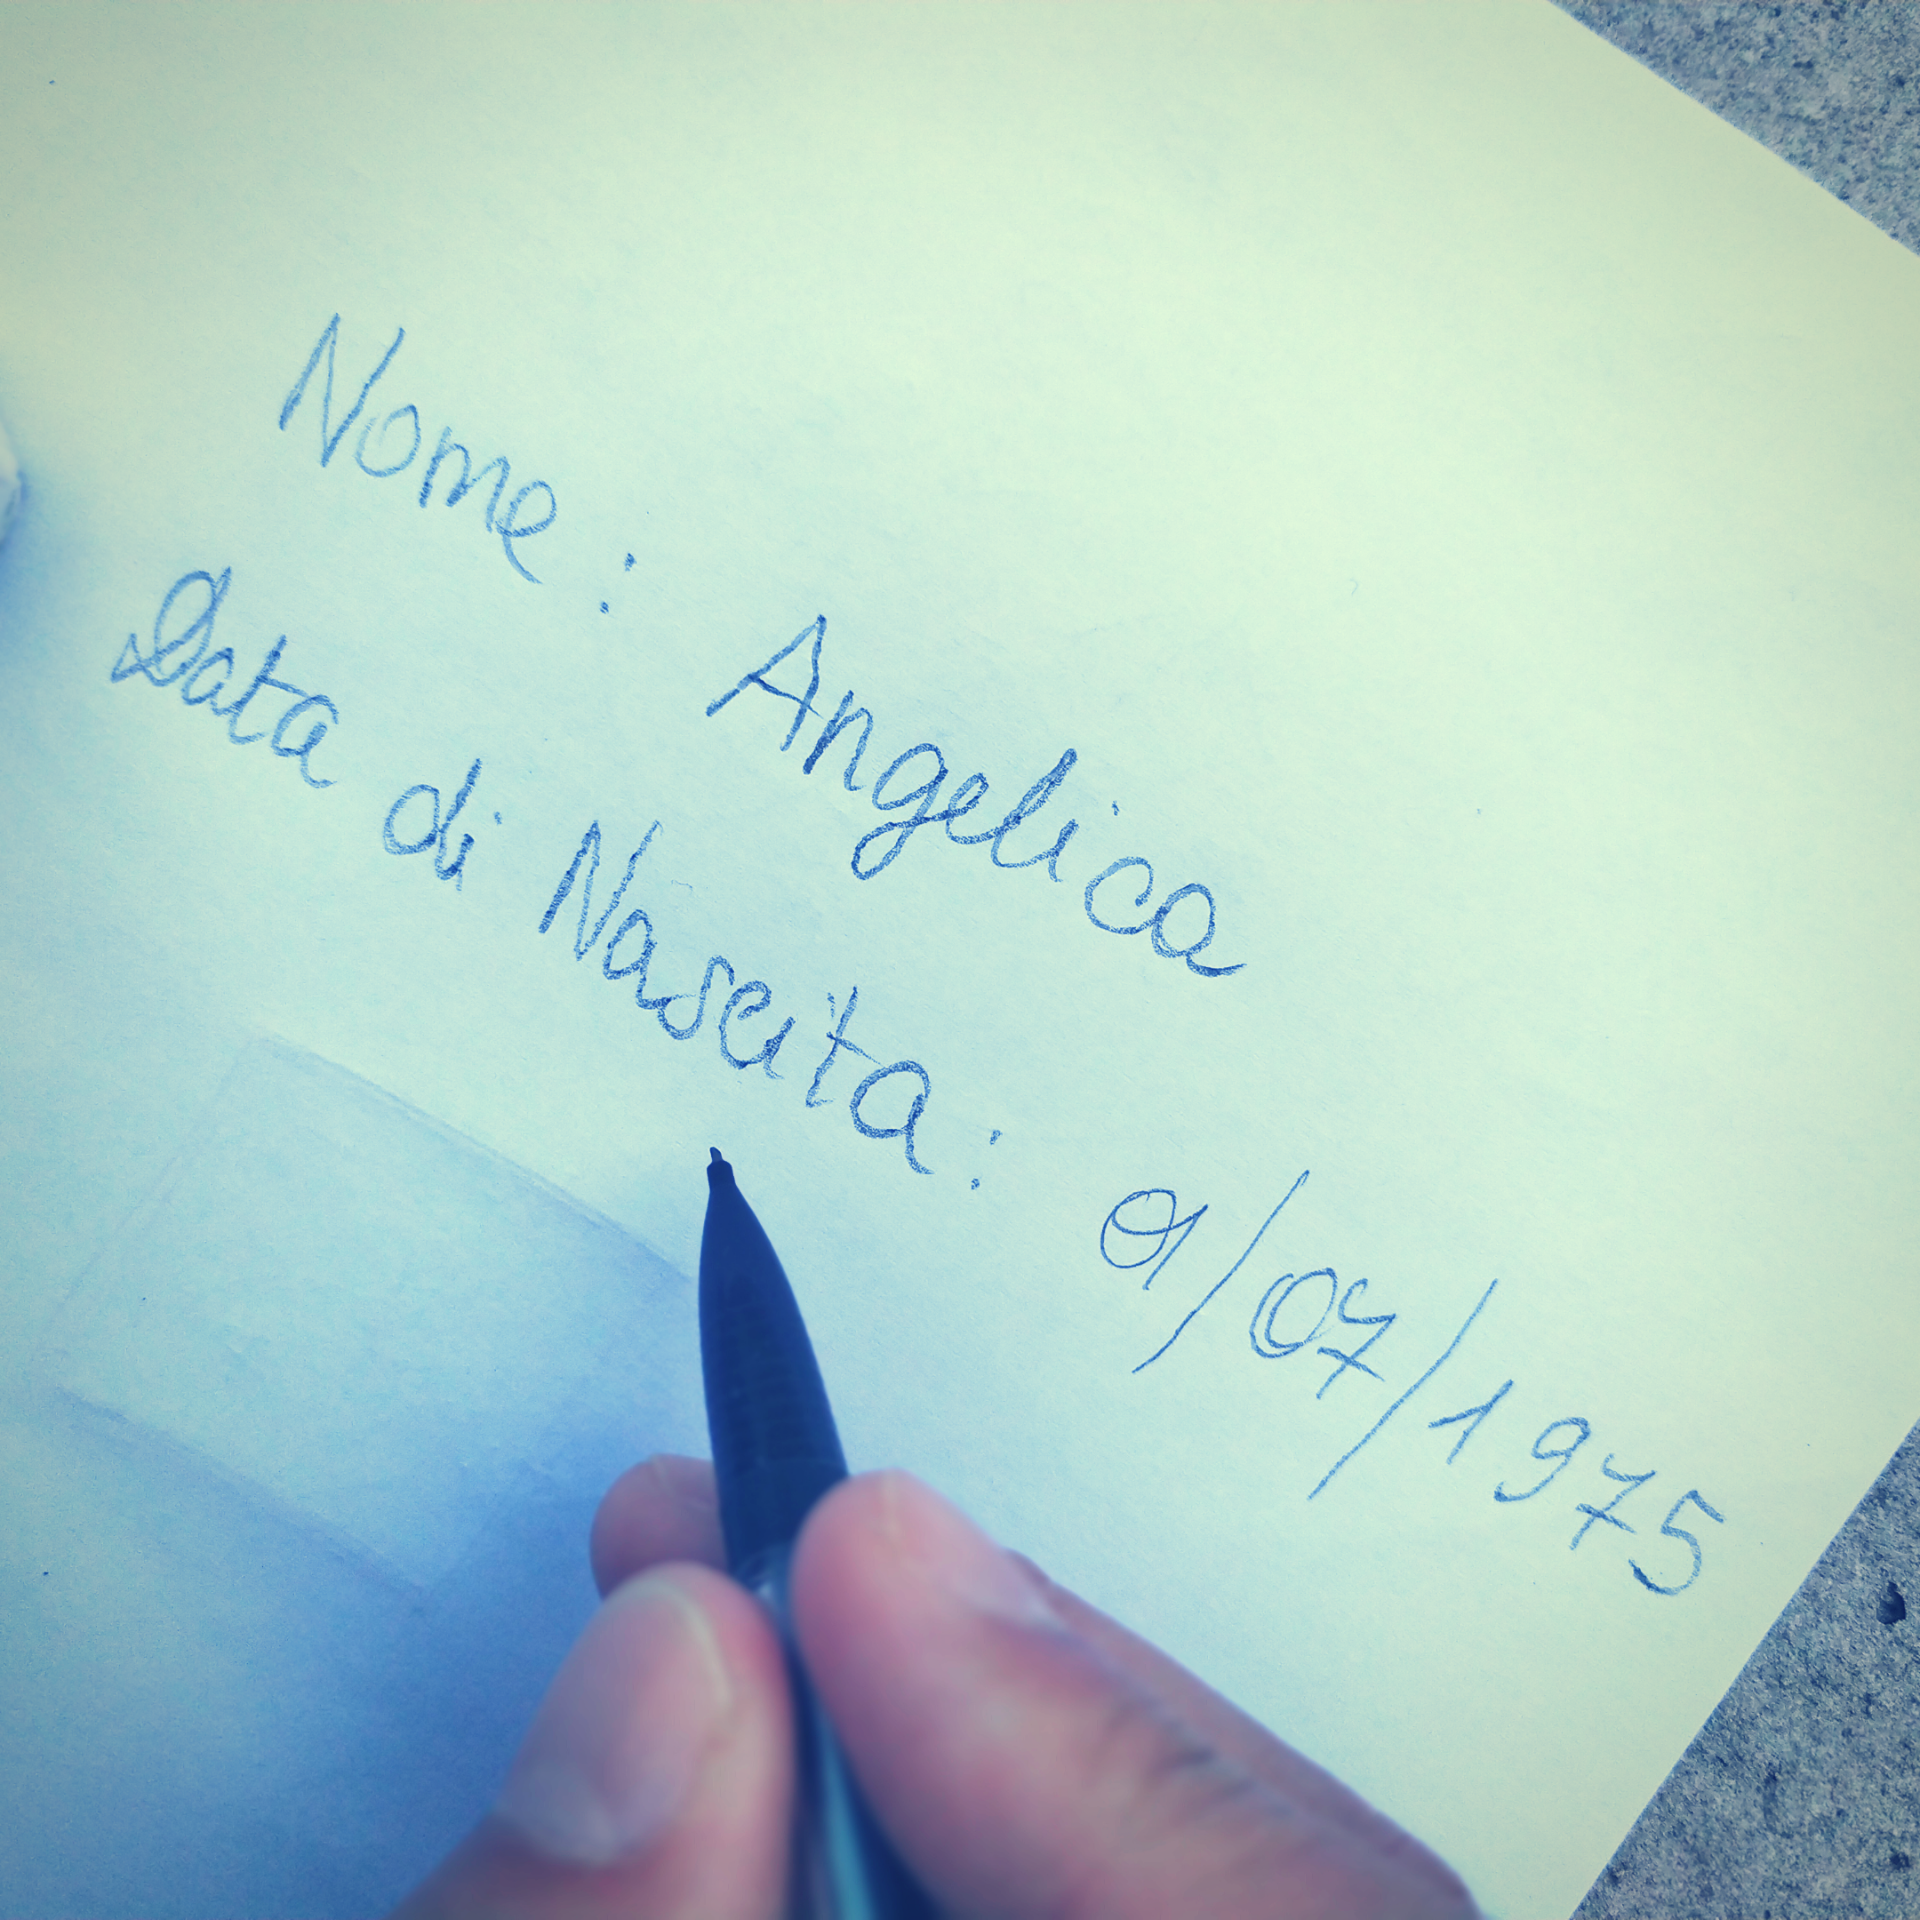 Nome: Angelica
Data di Nascita: 01/07/1975